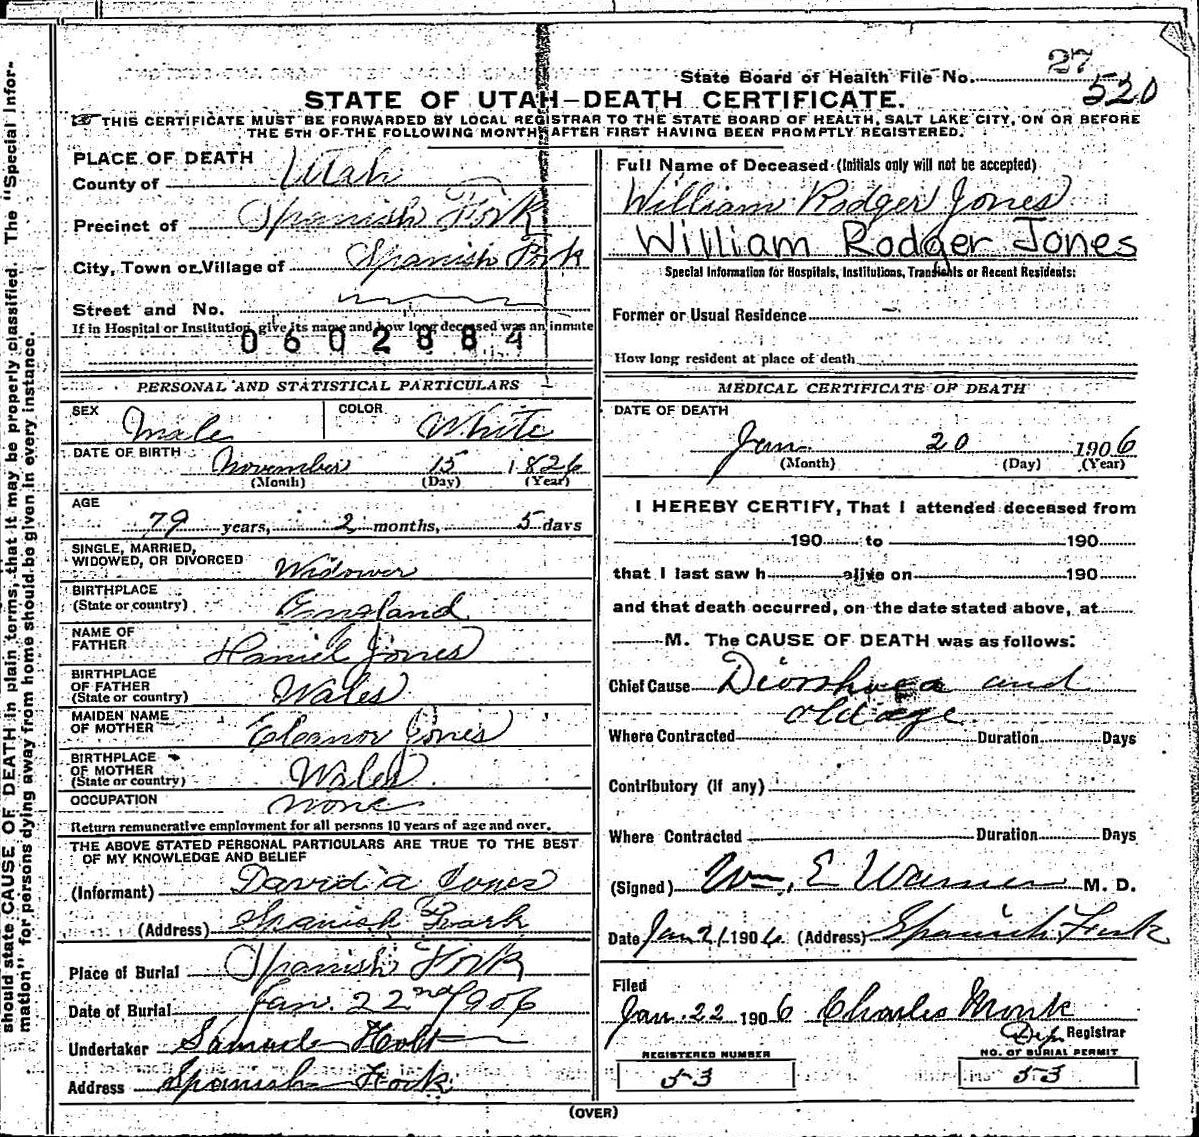 should state CAUSE OF DEATH in plain terms, that it may be properly classified. The "Special Infor-
mation" for persons dying away from home should be given in every instance.
State Board of Health File No. 27
520
STATE OF UTAH-DEATH CERTIFICATE.
THIS CERTIFICATE MUST BE FORWARDED BY LOCAL REGISTRAR TO THE STATE BOARD OF HEALTH, SALT LAKE CITY, ON OR BEFORE
THE 5TH OF THE FOLLOWING MONTH AFTER FIRST HAVING BEEN PROMPTLY REGISTERED.
PLACE OF DEATH
County of Utah
Precinct of Spanish Fork
City, Town or Village of Spanish Fork
Street and No.
If in Hospital or Institution, give its name and how long deceased was an inmate
0602884
PERSONAL AND STATISTICAL PARTICULARS
SEX Male COLOR White
DATE OF BIRTH November 15 1826
(Month) (Day) (Year)
AGE
79 years, 2 months, 5 days
SINGLE, MARRIED,
WIDOWED, OR DIVORCED Widower
BIRTHPLACE
(State or country) England
NAME OF
FATHER Daniel Jones
BIRTHPLACE
OF FATHER
(State or country) Wales
MAIDEN NAME
OF MOTHER Eleanor Jones
BIRTHPLACE
OF MOTHER
(State or country) Wales
OCCUPATION none
Return remunerative employment for all persons 10 years of age and over.
THE ABOVE STATED PERSONAL PARTICULARS ARE TRUE TO THE BEST
OF MY KNOWLEDGE AND BELIEF
(Informant) David a Jones
(Address) Spanish Fork
Place of Burial Spanish Fork
Date of Burial Jan. 22nd 1906
Undertaker Samuel Holt
Address Spanish Fork
Full Name of Deceased (Initials only will not be accepted)
William Rodger Jones
William Rodger Jones
Special Information for Hospitals, Institutions, Transients or Recent Residents:
Former or Usual Residence
How long resident at place of death
MEDICAL CERTIFICATE OF DEATH
DATE OF DEATH
Jan 20 1906
(Month) (Day) (Year)
I HEREBY CERTIFY, That I attended deceased from
190 to 190
that I last saw h alive on 190
and that death occurred, on the date stated above, at
M. The CAUSE OF DEATH was as follows:
Chief Cause Diorrhoea and
old age
Where Contracted Duration Days
Contributory (if any)
Where Contracted Duration Days
(Signed) Wm. E Warner M. D.
Date Jan 21 1906 (Address) Spanish Fork
Filed
Jan. 22 1906 Charles Monk
Dep Registrar
REGISTERED NUMBER
53
NO. OF BURIAL PERMIT
53
(OVER)